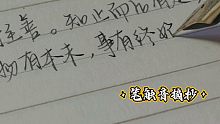 至善。知止而后有
物有本末,事有终始
笔触音摘抄